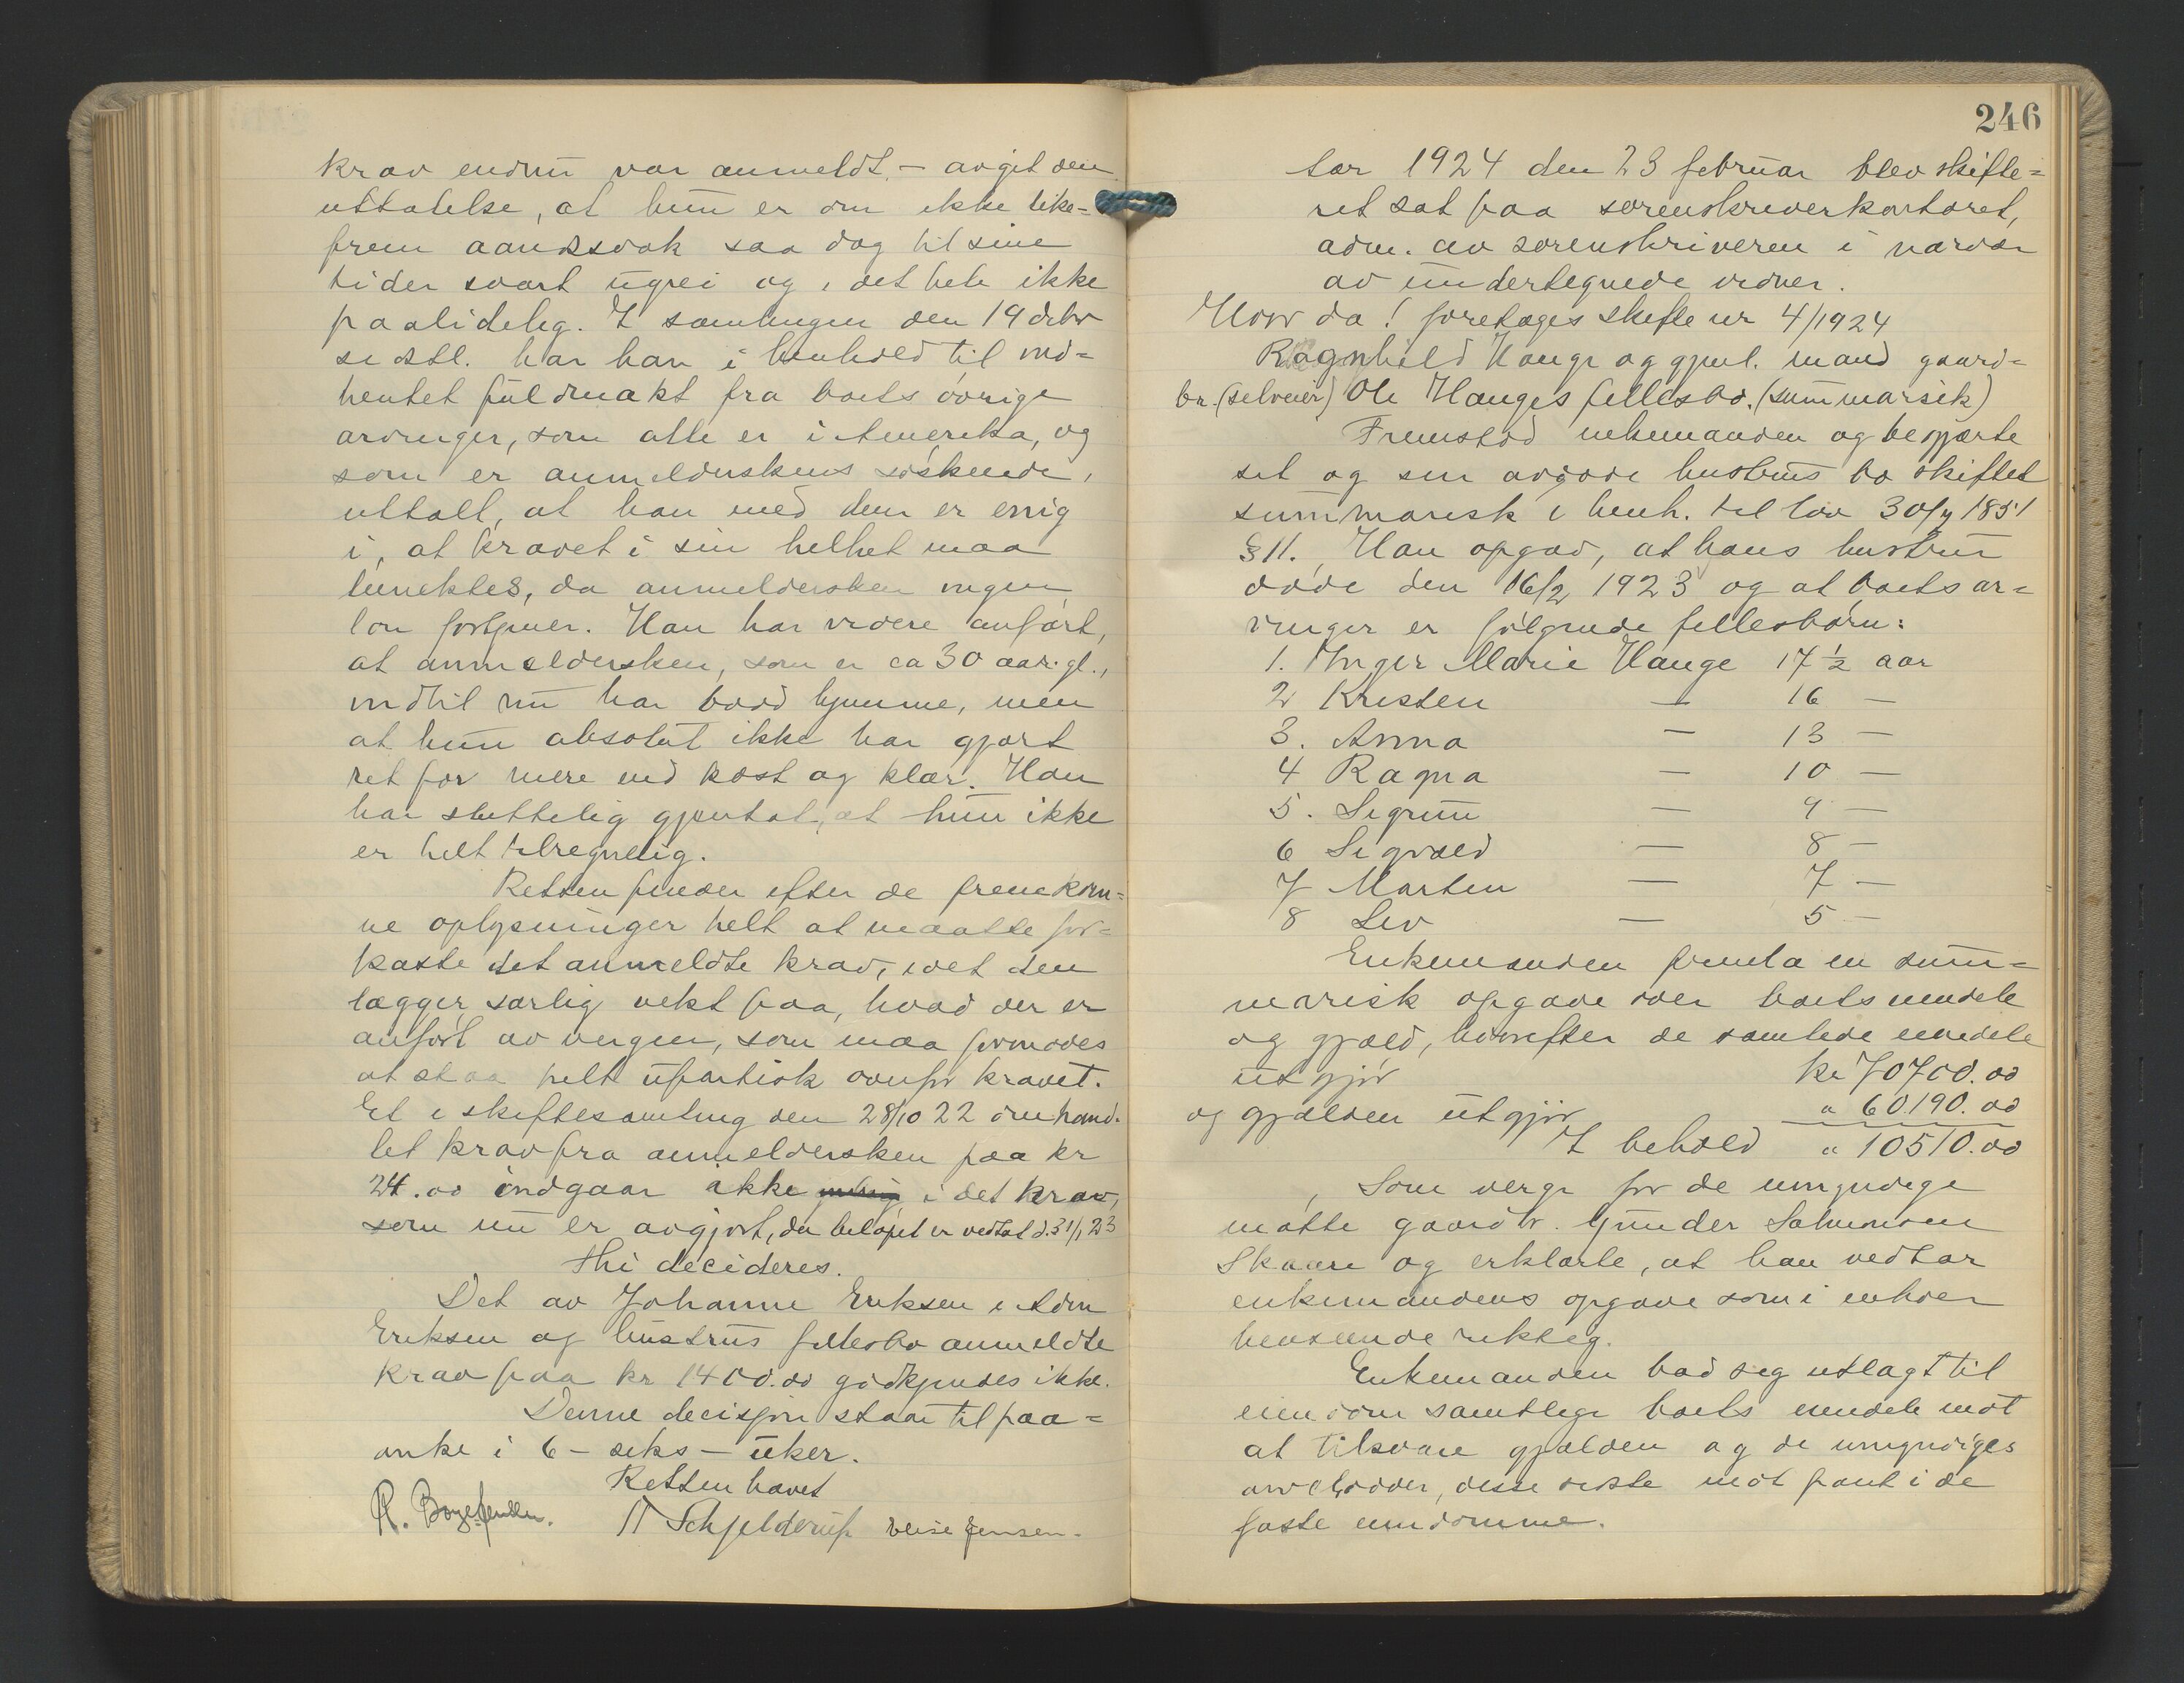 krav endnu var anmeldt, – avgit den
uttalelse, at hun er om ikke like=
frem aandssvak saa dog til sine
tider svært ugrei og i det hele ikke
paalidelig. I samlingen den 19 dcbr
sidstl. har han i henhold til ind=
hentet fuldmakt fra boets øvrige
arvinger, som alle er i Amerika, og
som er anmelderskens søskende,
uttalt, at han med dem er enig
i, at kravet i sin helhet maa
benektes, da anmeldersken ingen
løn fortjener. Han har videre anført,
at anmeldersken, som er ca 30 aar gl.,
indtil nu har bodd hjemme, men
at hun absolut ikke har gjort
ret for mere end kost og klær. Han
har sluttelig gjentat, at hun ikke
er helt tilregnelig.
Retten finder efter de fremkom=
ne oplysninger helt at maatte for=
kaste det anmeldte krav, idet den
lægger særlig vekt paa, hvad der er
anført av vergen, som maa formodes
at staa helt upartisk overfor kravet.
Et i skiftesamling den 28/10 22 omhand.
let krav fra anmeldersken paa kr
24.00 indgaar ikke i det krav,
som nu er avgjort, da beløpet er vedtat d. 31/1 23
Thi decideres.
Det av Johanne Eriksen i Edvin
Eriksen og hustrus fellesbo anmeldte
krav paa kr 1400.00 godkjendes ikke.
Denne decisjon staar til paa=
anke i 6 – seks – uker.
Retten hævet
R. Boye Jensen. Schjelderup Jensen.
246
Aar 1924 den 23 februar blev skifte=
ret sat paa sorenskriverkontoret,
adm. av sorenskriveren i nærvær
av undertegnede vidner.
Hvor da! foretoges skifte nr 4/1924
Ragnhild Hauge og gjenl. mand gaard=
br. (selveier) Ole Hauges fellesbo. (summarisk)
Fremstod enkemanden og begjærte
sit og sin avdøde hustrus bo skiftet
summarisk i henh. til lov 30/7 1851
§ 11. Han opgav, at hans hustru
døde den 16/2 1923 og at boets ar=
vinger er følgende fellesbørn:
1. Inger Marie Hauge 17 ½ aar
2 Kristen — 16 —
3. Anna — 13 —
4 Ragna — 10 —
5. Sigrun — 9 —
6 Sigvald — 8 —
7 Martin — 7 —
8 Liv — 5 —
Enkemanden fremla en sum=
marisk opgave over boets eiendele
og gjæld, hvorefter de samlede eiendele
utgjør kr 70700.00
og gjælden utgjør " 60190.00
I behold " 10510.00
Som verge for de umyndige
møtte gaardbr. Gunder Salomonsen
Skaare og erklærte, at han vedtar
enkemandens opgave som i enhver
henseende riktig.
Enkemanden bad sig utlagt til
eiendom samtlige boets eiendele mot
at tilsvare gjælden og de umyndiges
arvelodder, disse sidste mot pant i de
faste eiendomme.